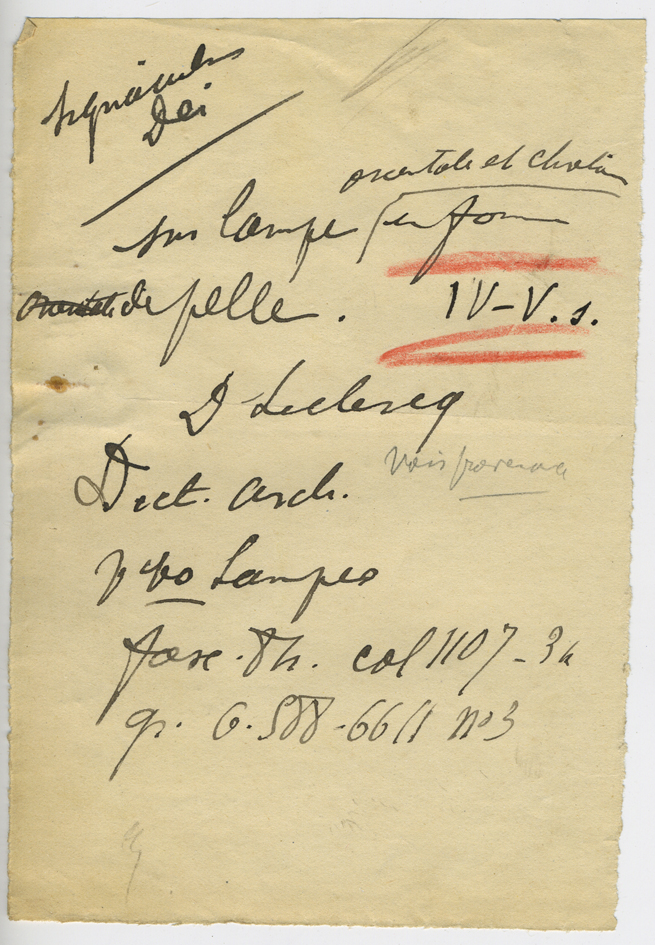 Signaculus
Dei
orientale et chrétien
sur lampe en forme
de pelle. IV-V. s.
D Leclercq
Dict. arch.
Voir provenance
vo Lampes
fasc. 8h. col 1107-
n°3